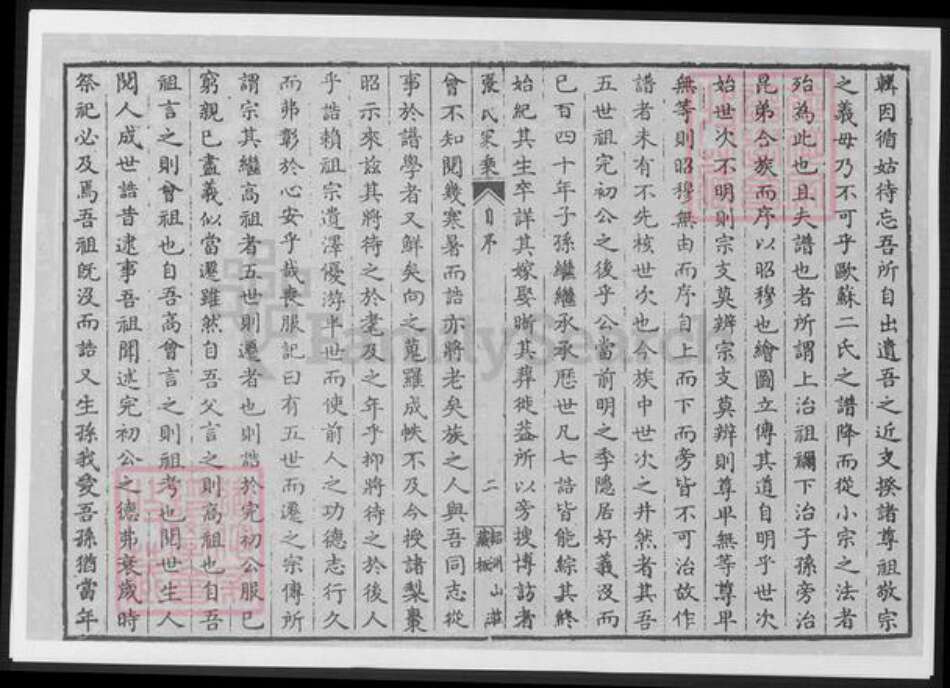 輯因循姑待忘吾所自出遺吾之近支揆諸尊祖敬宗
之義毋乃不可乎歐蘇二氏之譜降而從小宗之法者
殆為此也且夫譜也者所謂上治祖禰下治子孫旁治
昆弟合族而序以昭穆也繪圖立傳其道自明乎世次
始世次不明則宗支莫辨宗支莫辨則尊卑無等尊卑
無等則昭穆無由而序自上而下而旁皆不可治故作
譜者未有不先核世次也今族中世次之井然者其吾
五世祖完初公之後乎公當前明之季隱居好義沒而
已百四十年子孫繼繼承承歷世凡七誥皆能綜其終
始紀其生卒詳其嫁娶晰其葬徙益所以旁搜博訪者
張氏家乘 自序 二 韶洲山莊藏板
曾不知閱幾寒暑而誥亦將老矣族之人與吾同志從
事於譜學者又鮮矣向之蒐羅成帙不及今授諸梨棗
昭示來茲其將待之於耄及之年乎抑將待之於後人
乎誥賴祖宗遺澤優游半世而使前人之功德志行久
而弗彰於心安乎哉喪服記曰有五世而遷之宗傳所
謂宗其繼高祖者五世則遷者也則誥於完初公服已
窮親已盡義似當遷雖然自吾父言之則高祖也自吾
祖言之則曾祖也自吾高曾言之則祖考也閱世生人
閱人成世誥昔逮事吾祖聞述完初公之德弗衰歲時
祭祀必及焉吾祖既沒而誥又生孫我愛吾孫猶當年
FamilySearch